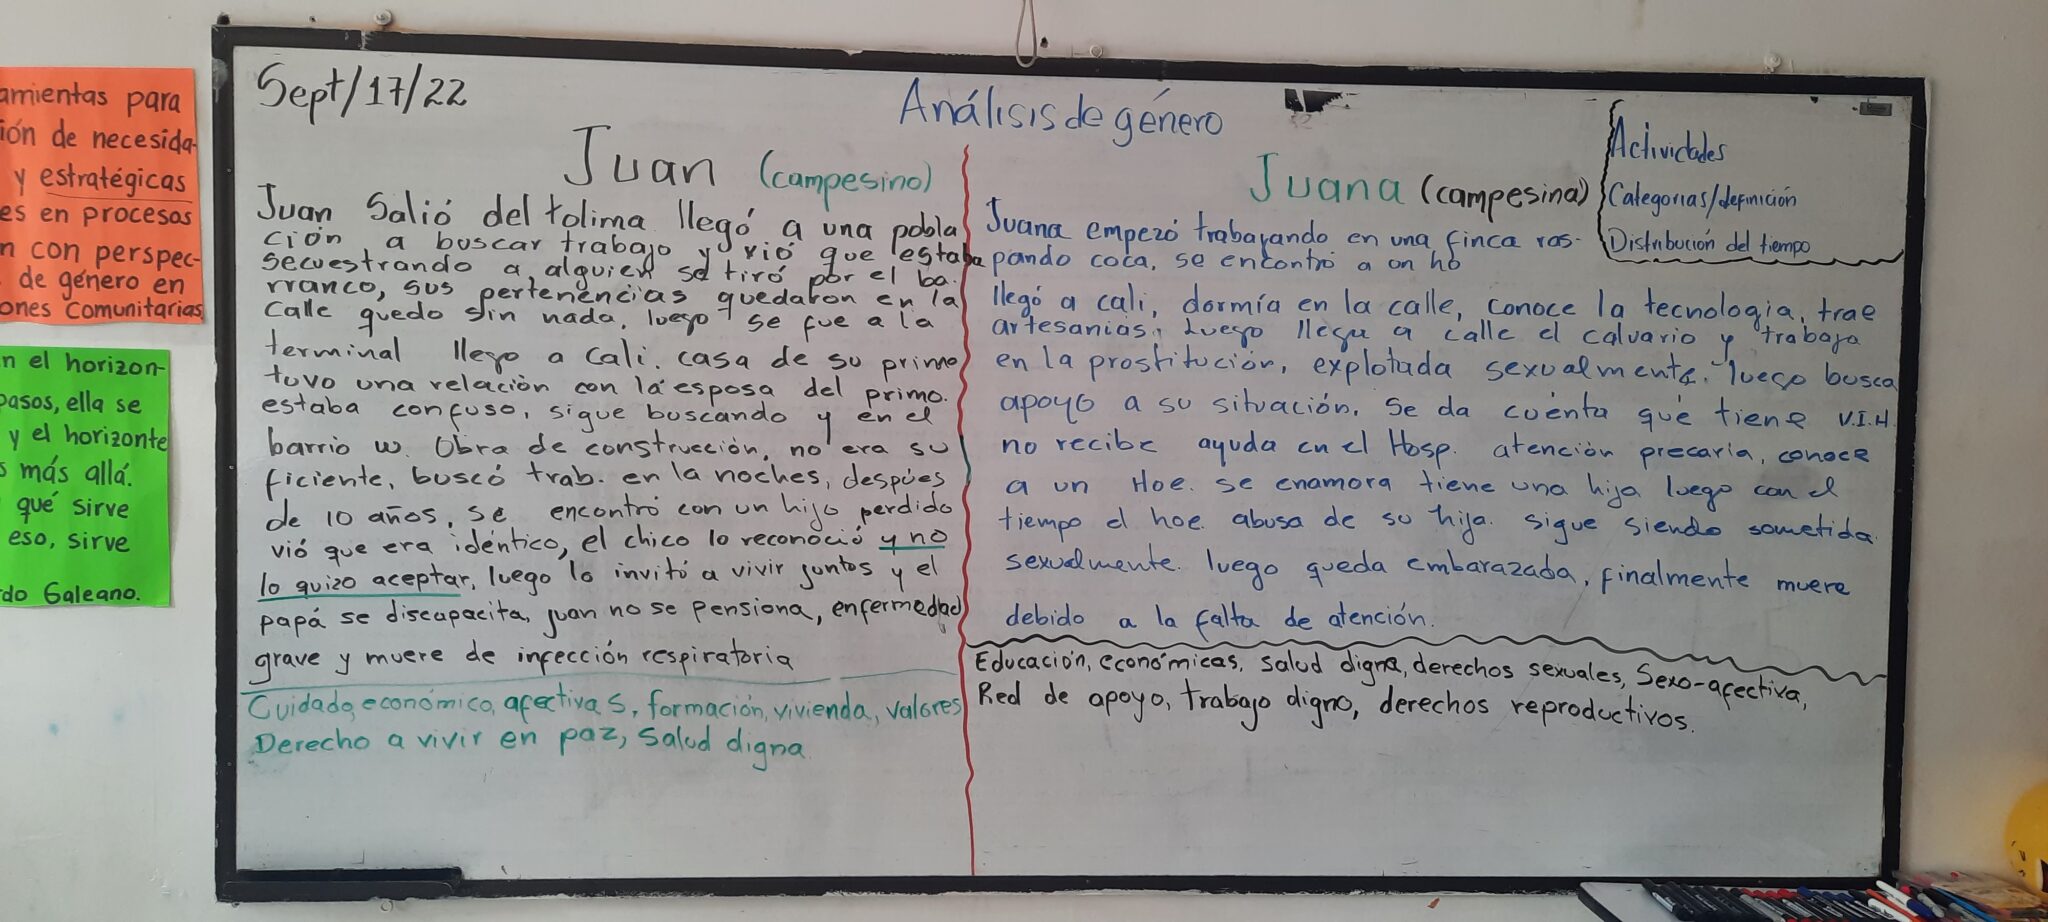 amientas para
ión de necesida-
y estratégicas
es en procesos
n con perspec-
de género en
ones comunitarias
n el horizon-
pasos, ella se
y el horizonte
s más allá.
qué sirve
eso, sirve
do Galeano.
Sept/17/22
Análisis de género
Juan (campesino)
Juan Salió del tolima llegó a una pobla
ción, a buscar trabajo y vió que estaba
secuestrando a alguien se tiró por el ba-
rranco, sus pertenencias quedaron en la
calle quedo sin nada, luego se fue a la
terminal llego a cali. casa de su primo
tuvo una relación con la esposa del primo.
estaba confuso, sigue buscando y en el
barrio w. Obra de construcción, no era su
ficiente, buscó trab. en la noches, despúes
de 10 años, se encontró con un hijo perdido
vió que era idéntico, el chico lo reconoció y no
lo quizo aceptar, luego lo invitó a vivir juntos y el
papá se discapacita, juan no se pensiona, enfermedad
grave y muere de infección respiratoria
Cuidado, económico, afectivas, formación, vivienda, valores
Derecho a vivir en paz, Salud digna
Juana (campesina)
Actividades
Categorias/definición
Distribución del tiempo
Juana empezó trabajando en una finca ras-
pando coca, se encontró a un ho
llegó a cali, dormía en la calle, conoce la tecnologia, trae
artesanias, Luego llega a calle el calvario y trabaja
en la prostitución, explotada sexualmente, luego busca
apoyo a su situación, Se da cuenta que tiene V.I.H
no recibe ayuda en el Hosp. atención precaria, conoce
a un Hoe. se enamora tiene una hija luego con el
tiempo el hoe. abusa de su hija. sigue siendo sometida
sexualmente. luego queda embarazada, finalmente muere
debido a la falta de atención.
Educación, económicas, salud digna, derechos sexuales, Sexo-afectiva,
Red de apoyo, trabajo digno, derechos reproductivos.